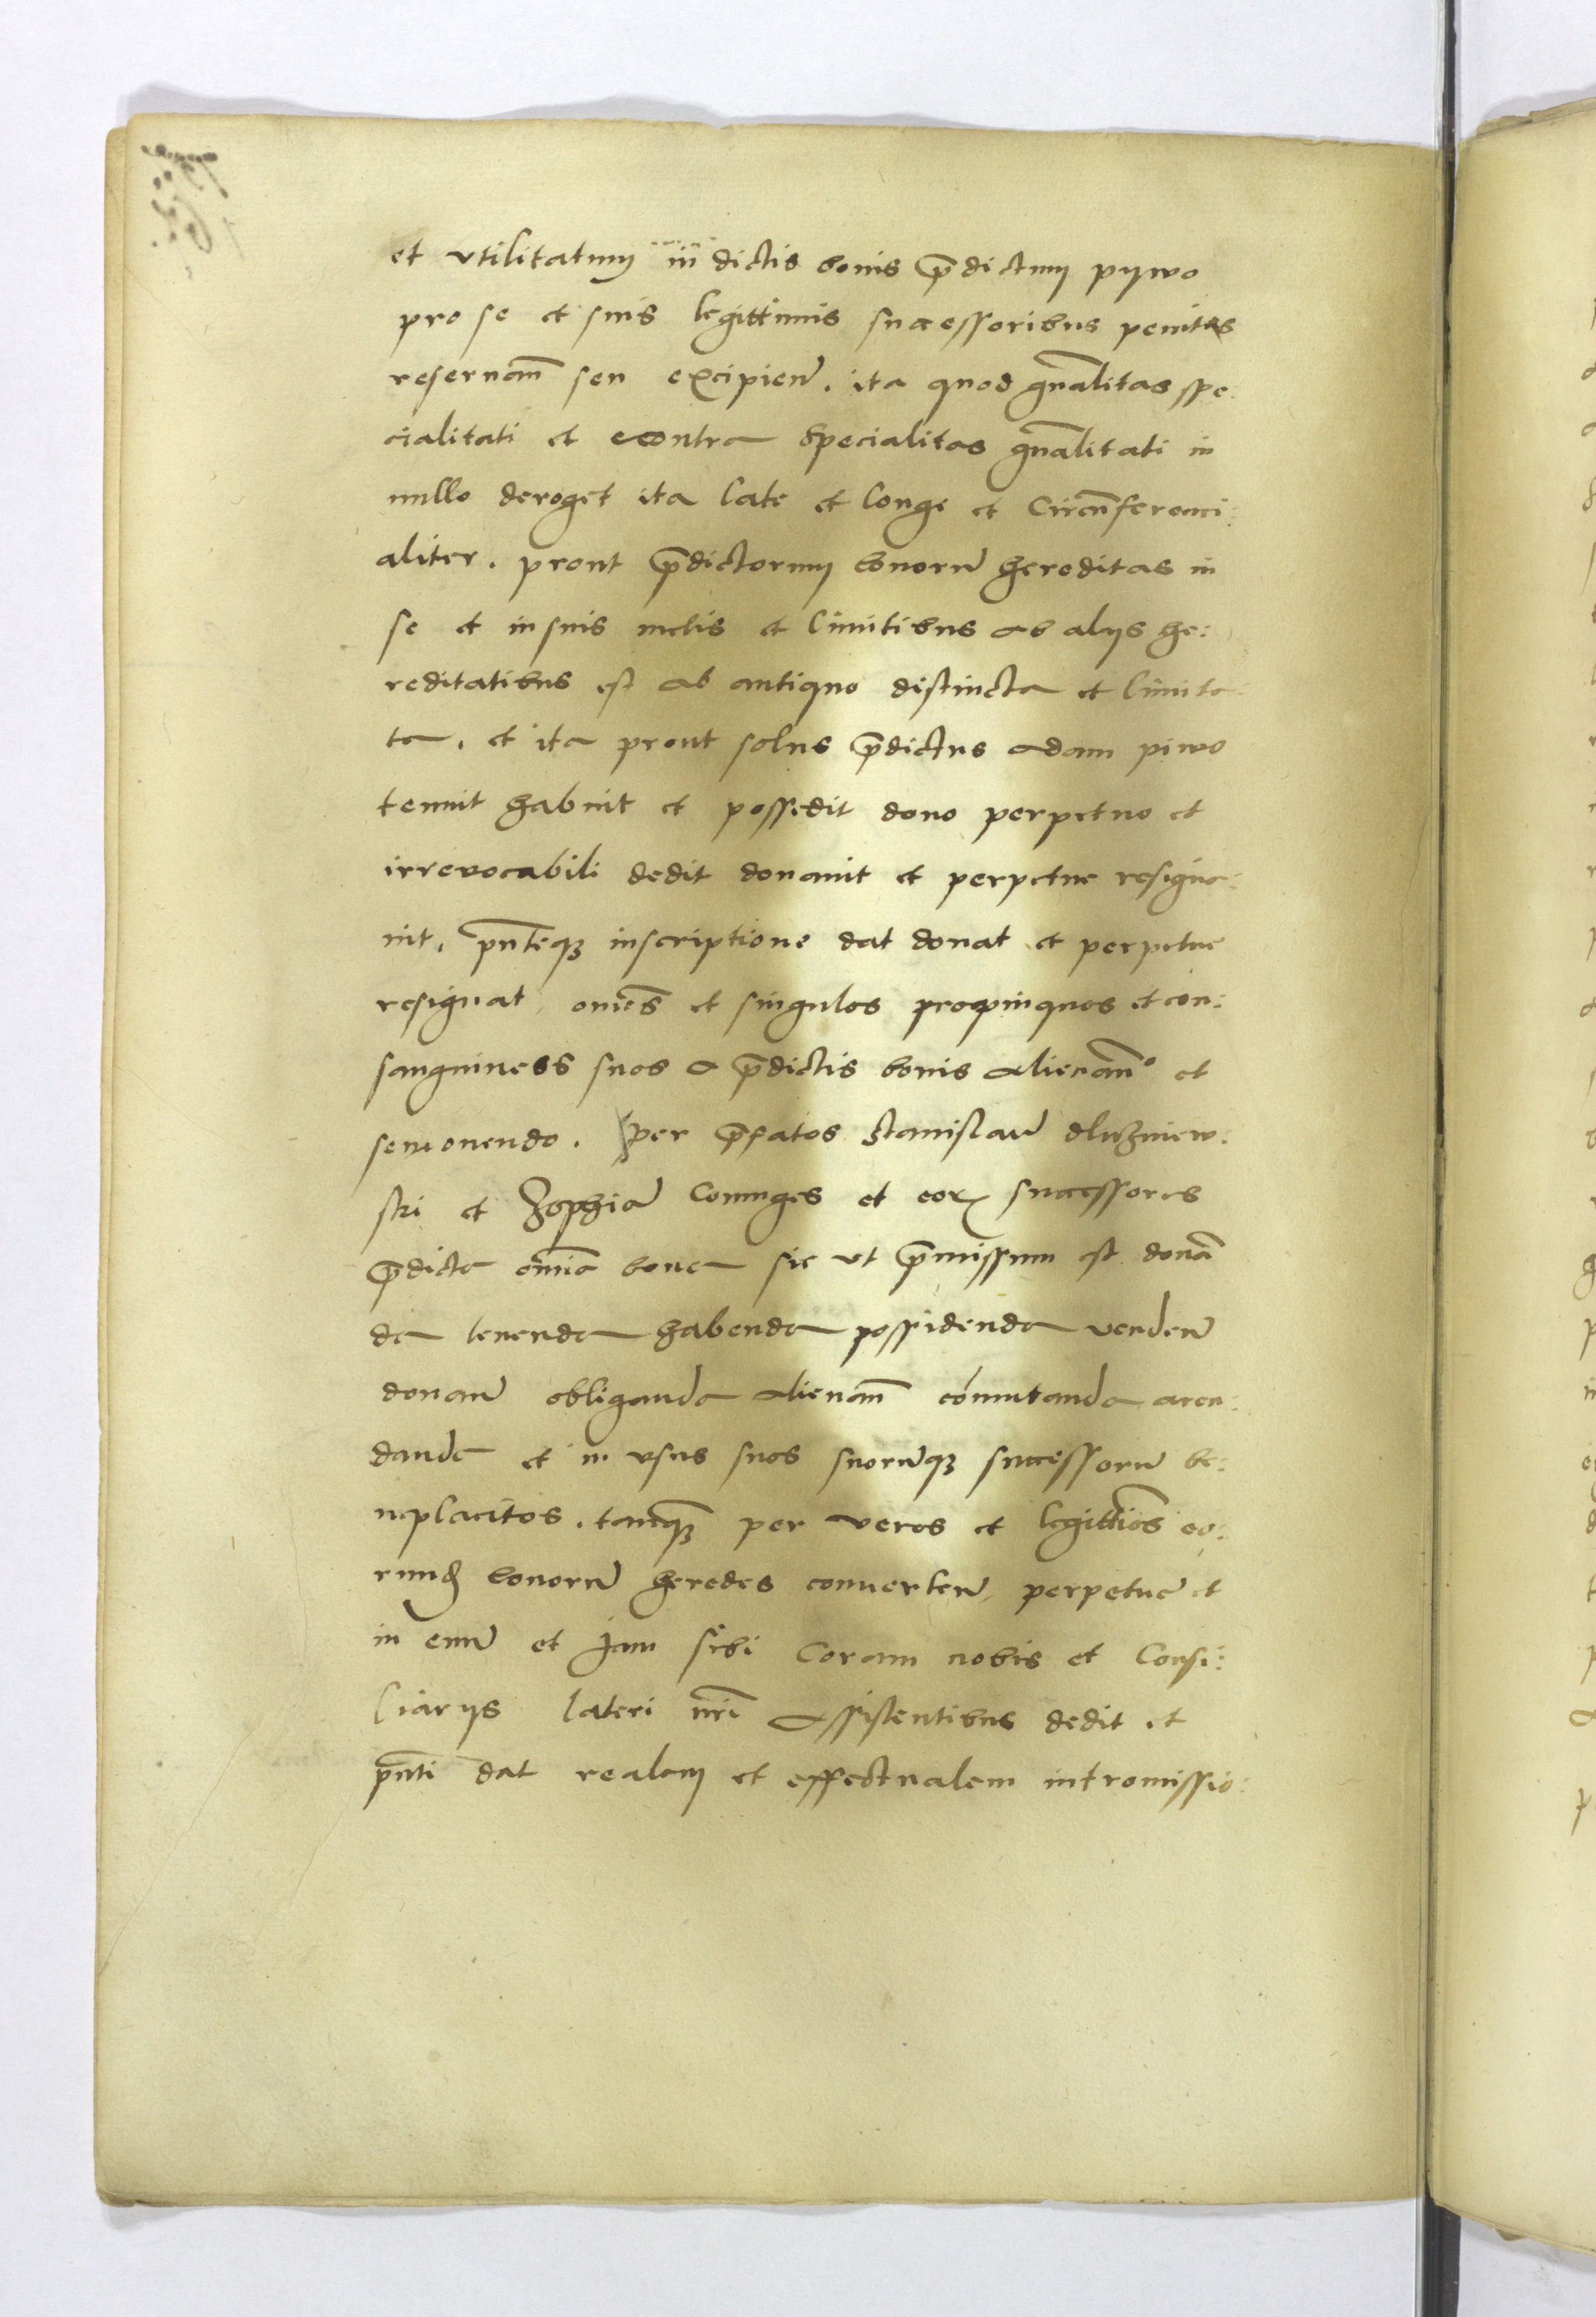 et vtilitatum in dictis bonis p̄dictum pywo
pro se et suis legittimis successoribus penitus
reseruan̄ seu excipien̄. ita quod gn̄alitas spe:
cialitati et econtra specialitas gn̄alitati in
nullo deroget ita late et longe et circūferenci:
aliter. prout p̄dictorum bonorū hereditas in
se et in suis metis et limitibus ab alys he:
reditatibus est ab antiquo distincta et limita
ta. et ita prout solus p̄dictus adam piwo
tenuit habuit et possedit dono perpetuo et
irreuocabili dedit donauit et perpetue resigna:
uit, pn̄teqȝ inscriptione dat donat et perpetue
resignat, omēs et singulos propinquos et con:
sanguineos suos a p̄dictis bonis alienan̄º et
semouendo. per p̄fatos Stanislaū dluzniew:
ski et Zophiā Coniuges et eoꝝ successores
p̄dicta om̄ia bona sic vt p̄missum est donā
da tenenda habenda possidenda venden̄
donan̄ obliganda alienan̄ com̄utanda aren:
danda et in vsus suos suorūqȝ successorū be:
neplacitos. tanqȝ per veros et legittīos eo:
rund̄ bonorū heredes conuerten̄ perpetue et
in euū et Jam sibi Coram nobis et Consi:
liarys lateri nr̄i assistentibus dedit et
pn̄ti dat realem et effectualem intromissio: